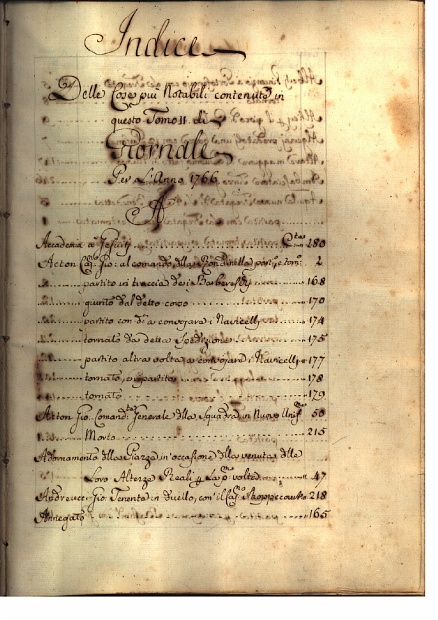 Indice
Delle Cose piu Notabili contenute in
questo Tomo II. di
Giornale
Per L'Anno 1766
A
Accademia a' Gesuiti 280
Acton Gio: al comando della 2
partito in traccia de i Barbereschi 168
del detto corso 170
partito con a convojare i Navicelli 174
tornato da detta Spedizione 175
partito altra volta a convojare i Navicelli 177
tornato, e ripartito 178
tornato 179
Acton Gio. Comand.te Generale della Squadra, in Nuovo 50
Morto 215
Adornamento della Piazza in occasione della venuta delle
Loro Altezze Reali p la p.ª volta 47
Andreucc. Gio. Tenente in duello, con il 218
Annegato 165